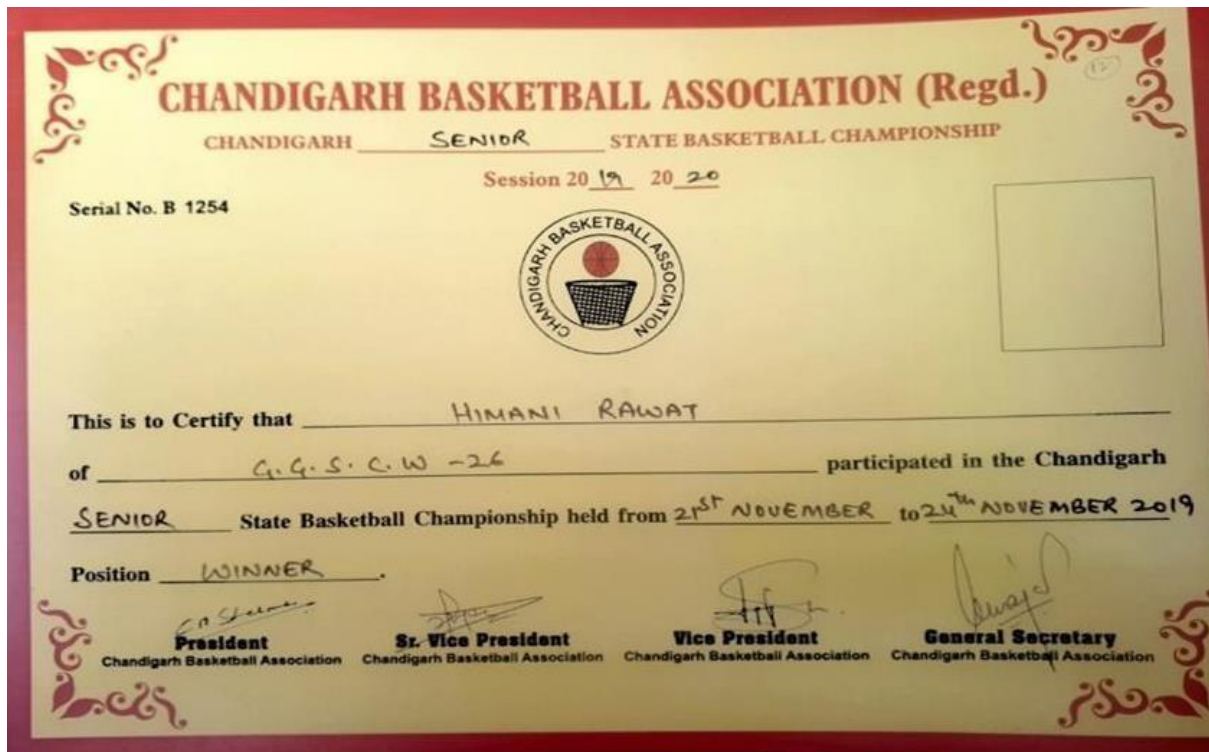 12
CHANDIGARH BASKETBALL ASSOCIATION (Regd.)
CHANDIGARH SENIOR STATE BASKETBALL CHAMPIONSHIP
Session 20 19 20 20
Serial No. B 1254
CHANDIGARH BASKETBALL ASSOCIATION
This is to Certify that HIMANI RAWAT
of G.G.S.C.W -26 participated in the Chandigarh
SENIOR State Basketball Championship held from 21ST NOVEMBER to 24th NOVEMBER 2019
Position WINNER.
President Sr. Vice President Vice President General Secretary
Chandigarh Basketball Association Chandigarh Basketball Association Chandigarh Basketball Association Chandigarh Basketball Association